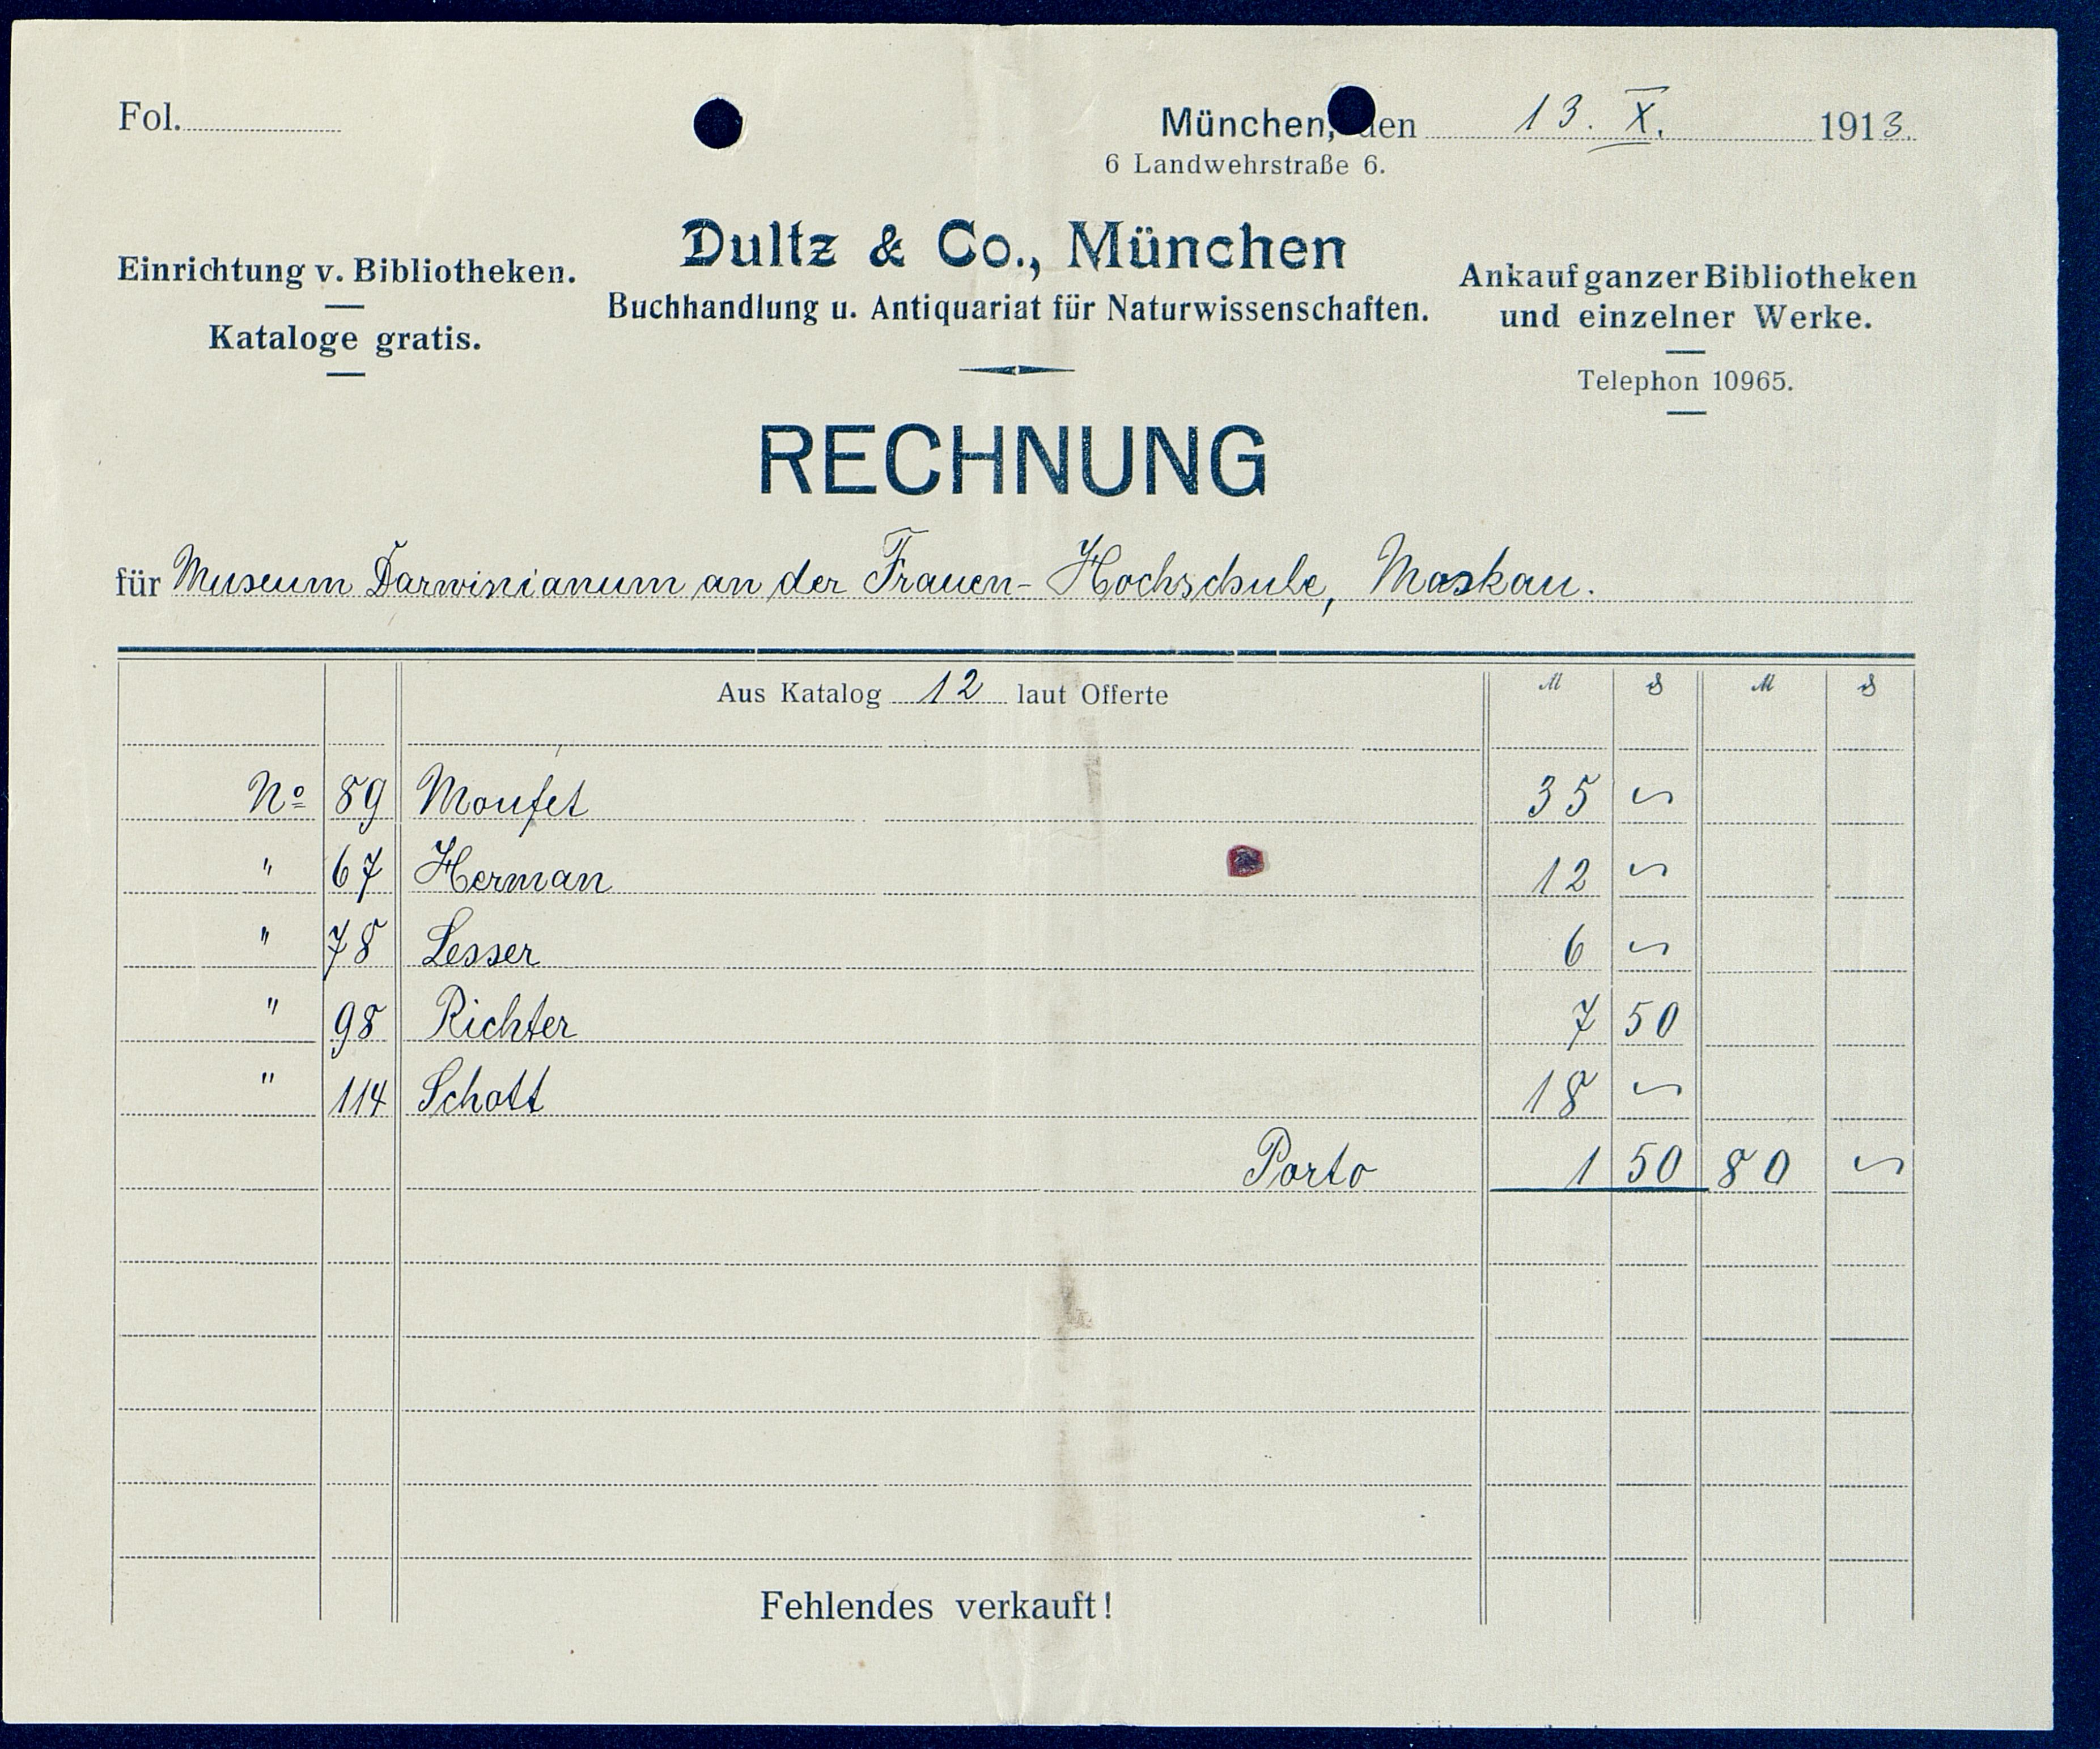 Fol.
München, den 13. X. 1913.
6 Landwehrstraße 6.
Dultz & Co., München
Buchhandlung u. Antiquariat für Naturwissenschaften.
Einrichtung v. Bibliotheken.
Kataloge gratis.
Ankauf ganzer Bibliotheken
und einzelner Werke.
Telephon 10965.
RECHNUNG
für Museum Darwinianum an der Frauen-Hochschule, Moskau.
Aus Katalog 12 laut Offerte ℳ ₰ ℳ ₰
Nº 89 Moufet 35 ~
" 67 Herman 12 ~
" 78 Lesser 6 ~
" 98 Richter 7 50
" 114 Schott 18 ~
Porto 1 50 80 ~
Fehlendes verkauft!